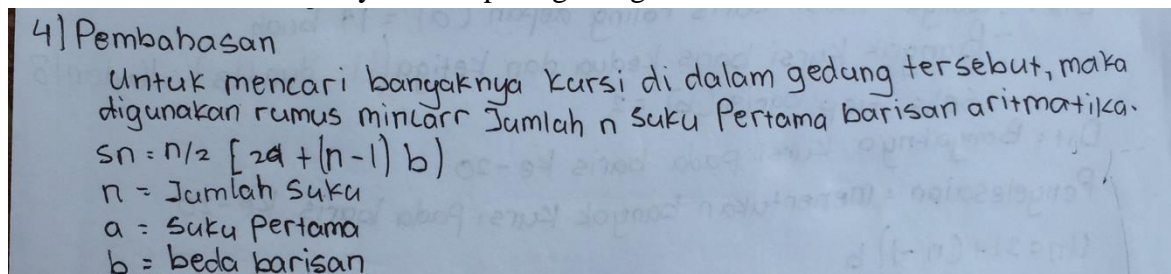 4) Pembahasan
untuk mencari banyaknya kursi di dalam gedung tersebut, maka
digunakan rumus mincarr Jumlah n suku Pertama barisan aritmatika.
Sn = n/2 [2a + (n-1) b)
n = Jumlah Suku
a = Suku Pertama
b = beda barisan